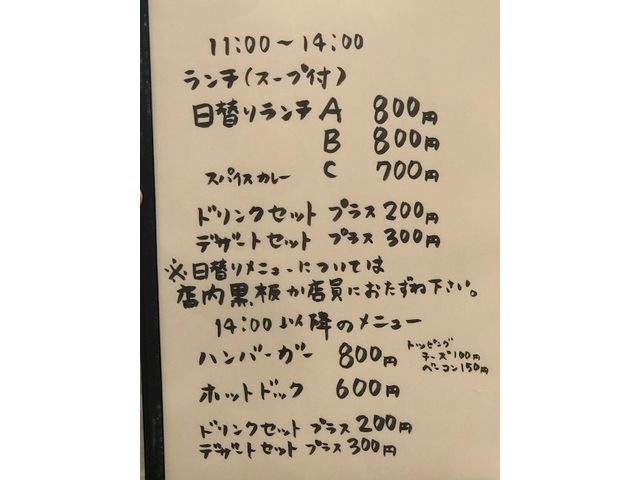 11:00〜14:00
ランチ(スープ付)
日替りランチ A 800円
B 800円
スパイスカレー C 700円
ドリンクセット プラス 200円
デザートセット プラス 300円
※日替りメニューについては
店内黒板か店員におたずね下さい。
14:00以降のメニュー
ハンバーガー 800円
トッピング
チーズ100円
ベーコン150円
ホットドック 600円
ドリンクセット プラス 200円
デザートセット プラス 300円